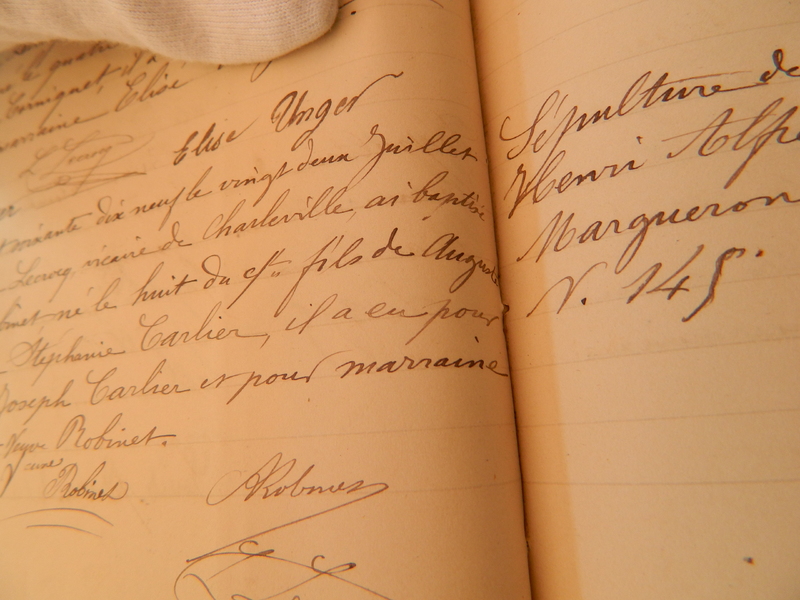 le quatre
Corniquet, il a
marraine Elise
L Lecocq Elise Unger
soixante dix neuf le vingt deux Juillet
Lecocq, vicaire de Charleville, ai baptisé
né le huit du ct fils de Auguste
Stéphanie Carlier, il a eu pour
Joseph Carlier et pour marraine
Veuve Robinet.
Robinet ARobinet
Sépulture de
Henri Alfre
Margueron
N. 145.